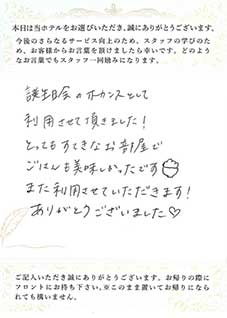 本日は当ホテルをお選びいただき、誠にありがとうございます。
今後のさらなるサービス向上のため、スタッフの学びのため、お客様からお言葉を頂けましたら幸いです。どのようなお言葉でもスタッフ一同励みになります。
誕生日会のホカンスとして
利用させて頂きました！
とってもすてきなお部屋で
ごはんも美味しかったです
また利用させていただきます！
ありがとうございました♡
ご記入いただき誠にありがとうございます。お帰りの際に
フロントにお持ち下さい。※このまま置いてお帰りになら
れても構いません。